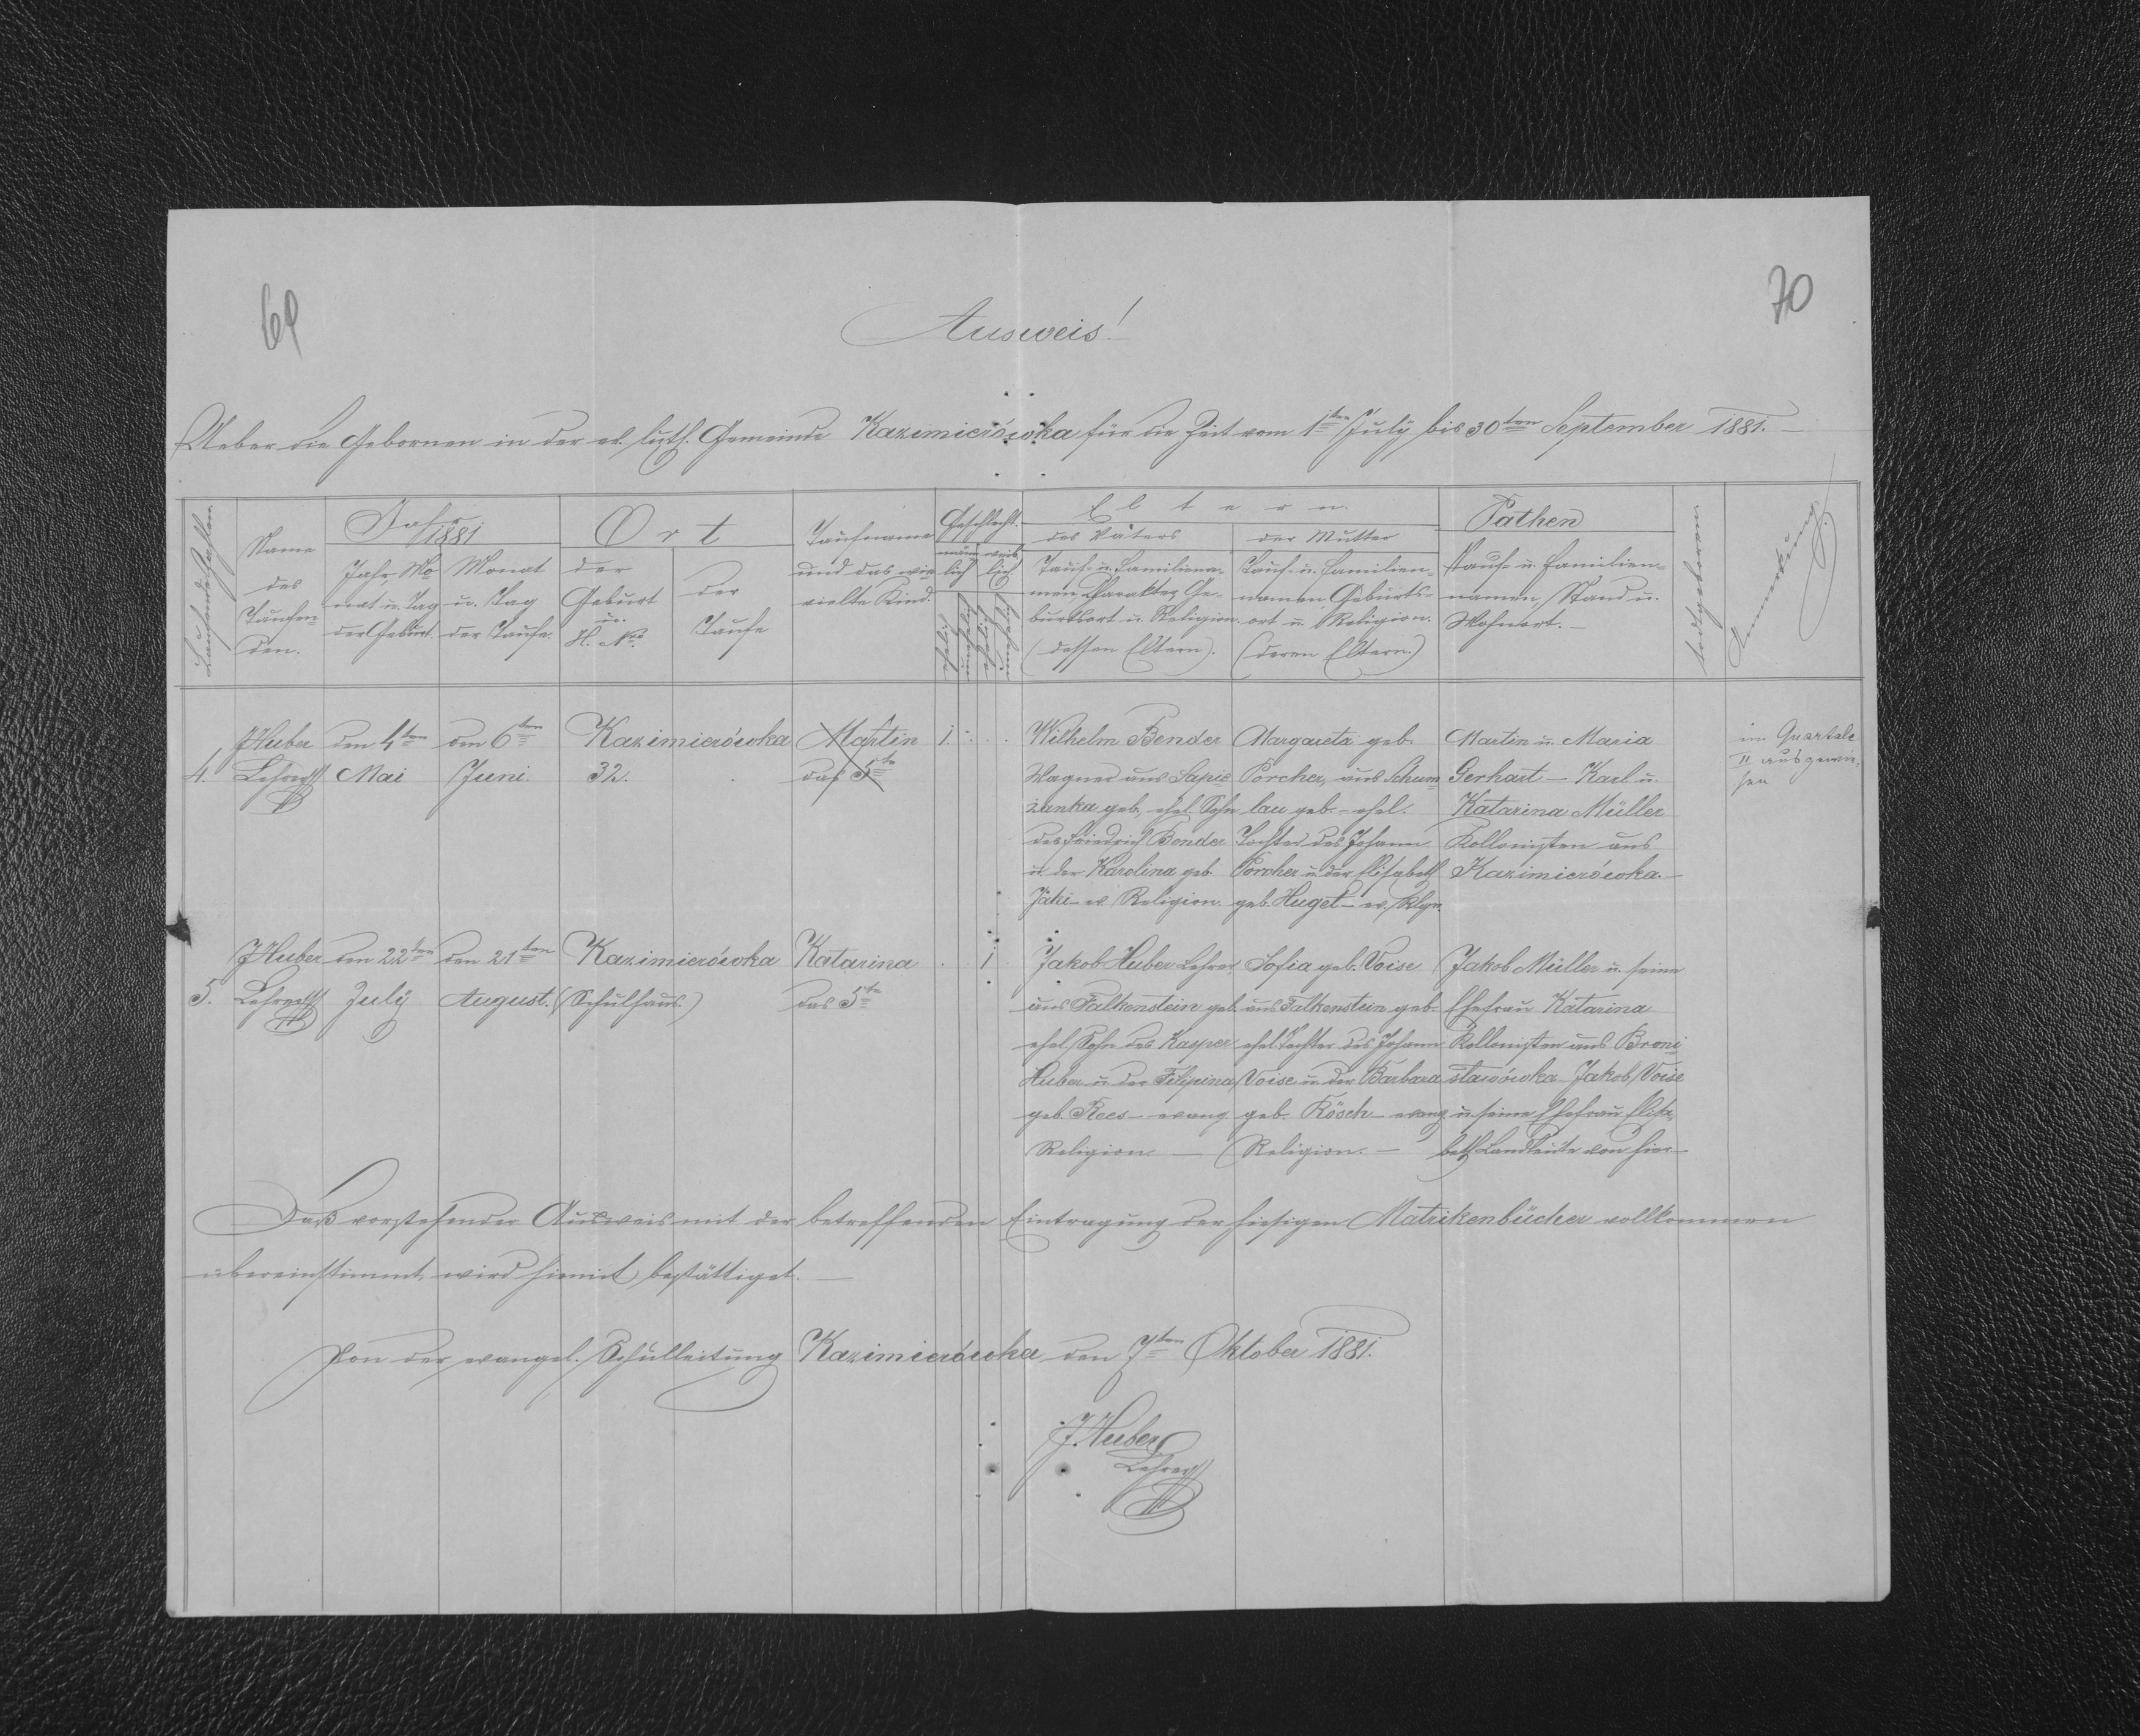 69
70
Ausweis!
Ueber die Gebornen in der ev. luth. Gemeinde Kazimierówka für die Zeit vom 1ten July bis 30ten September 1881.
Laufende Zahlen
Name
des
Taufen-
den.
Jahr
1881
Jahr Mo-
nat u. Tag
der Geburt.
Monat
u. Tag
der Taufe.
Ort
der
Geburt
u.
H. No.
der
Taufe
Taufname
und das wie-
vielte Kind.
Geschlecht.
män-
lich
weib-
lich.
ehelich
unehelich
ehelich
unehelich
Eltern.
des Vaters
Tauf- u. Familiena-
men, Charakter, Ge-
burtsort u. Religion.
(dessen Eltern).
der Mutter
Tauf- u. Familien-
namen, Geburts-
ort u. Religion.
(deren Eltern.)
Pathen
Tauf- u. Familien-
namen, Stand u.
Wohnort.
todtgeboren.
Anmerkung.
4.
J Huber
Lehrer
den 4ten
Mai
den 6ten
Juni.
Kazimierówka
32.
Martin
das 5te
1.
Wilhelm Bender
Wagner aus Sapie-
żanka geb., ehel. Sohn
des Friedrich Bender
u. der Karolina geb.
Jäki - ev. Religion.
Margareta geb.
Porcher, aus Schum-
lau geb. - ehel.
Tochter des Johann
Porcher u. der Elisabeth
geb. Huget - ev. Rlgn.
Martin u. Maria
Gerhart - Karl u.
Katarina Müller
Kollonisten aus
Kazimierówka.
im Quartale
II ausgewie-
sen
5.
J Huber
Lehrer
den 22ten
July
den 21ten
August.
Kazimierówka
(Schulhaus.)
Katarina
das 5te
1
Jakob Huber Lehrer
aus Falkenstein geb.
ehel. Sohn des Kasper
Huber u. der Filipina
geb. Rees - evang
Religion
Sofia geb. Voise
aus Falkenstein geb.
ehel. Tochter des Johann
Voise u. der Barbara
geb. Rösch - evang
Religion.
Jakob Müller u. seine
Ehefrau Katarina
Kollonisten aus Broni-
sławówka - Jakob Voise
u. seine Ehefrau Elisa-
beth Landleute von hier
Daß vorstehender Ausweis mit der betreffenden Eintragung der hiesigen Matrikenbücher vollkommen
übereinstimmt, wird hiemit bestättiget.
Von der evangel. Schulleitung Kazimierówka den 7ten Oktober 1881.
J. Huber
Lehrer